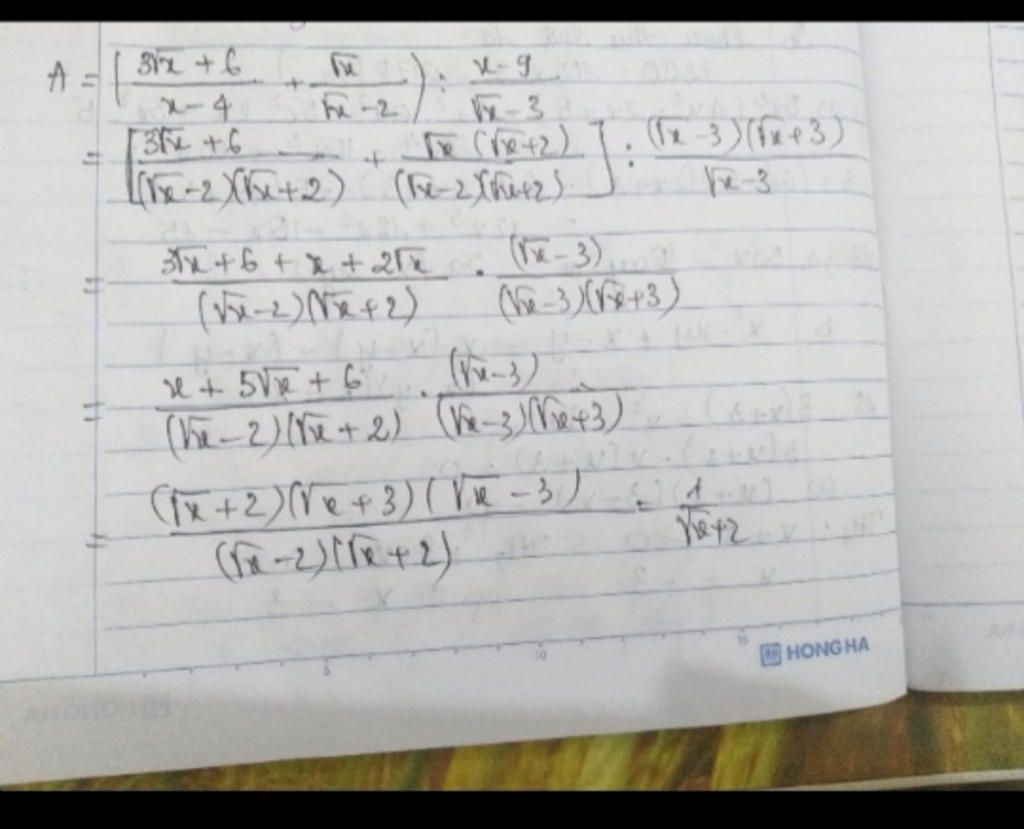 A = (3√x + 6 / x - 4 + √x / √x - 2) : x - 9 / √x - 3
= [3√x + 6 / (√x - 2)(√x + 2) + √x (√x + 2) / (√x - 2)(√x + 2)] : (√x - 3)(√x + 3) / √x - 3
= 3√x + 6 + x + 2√x / (√x - 2)(√x + 2) . (√x - 3) / (√x - 3)(√x + 3)
= x + 5√x + 6 / (√x - 2)(√x + 2) . (√x - 3) / (√x - 3)(√x + 3)
= (√x + 2)(√x + 3)(√x - 3) / (√x - 2)(√x + 2) = 1 / √x + 2
5 10 15
HONG HA